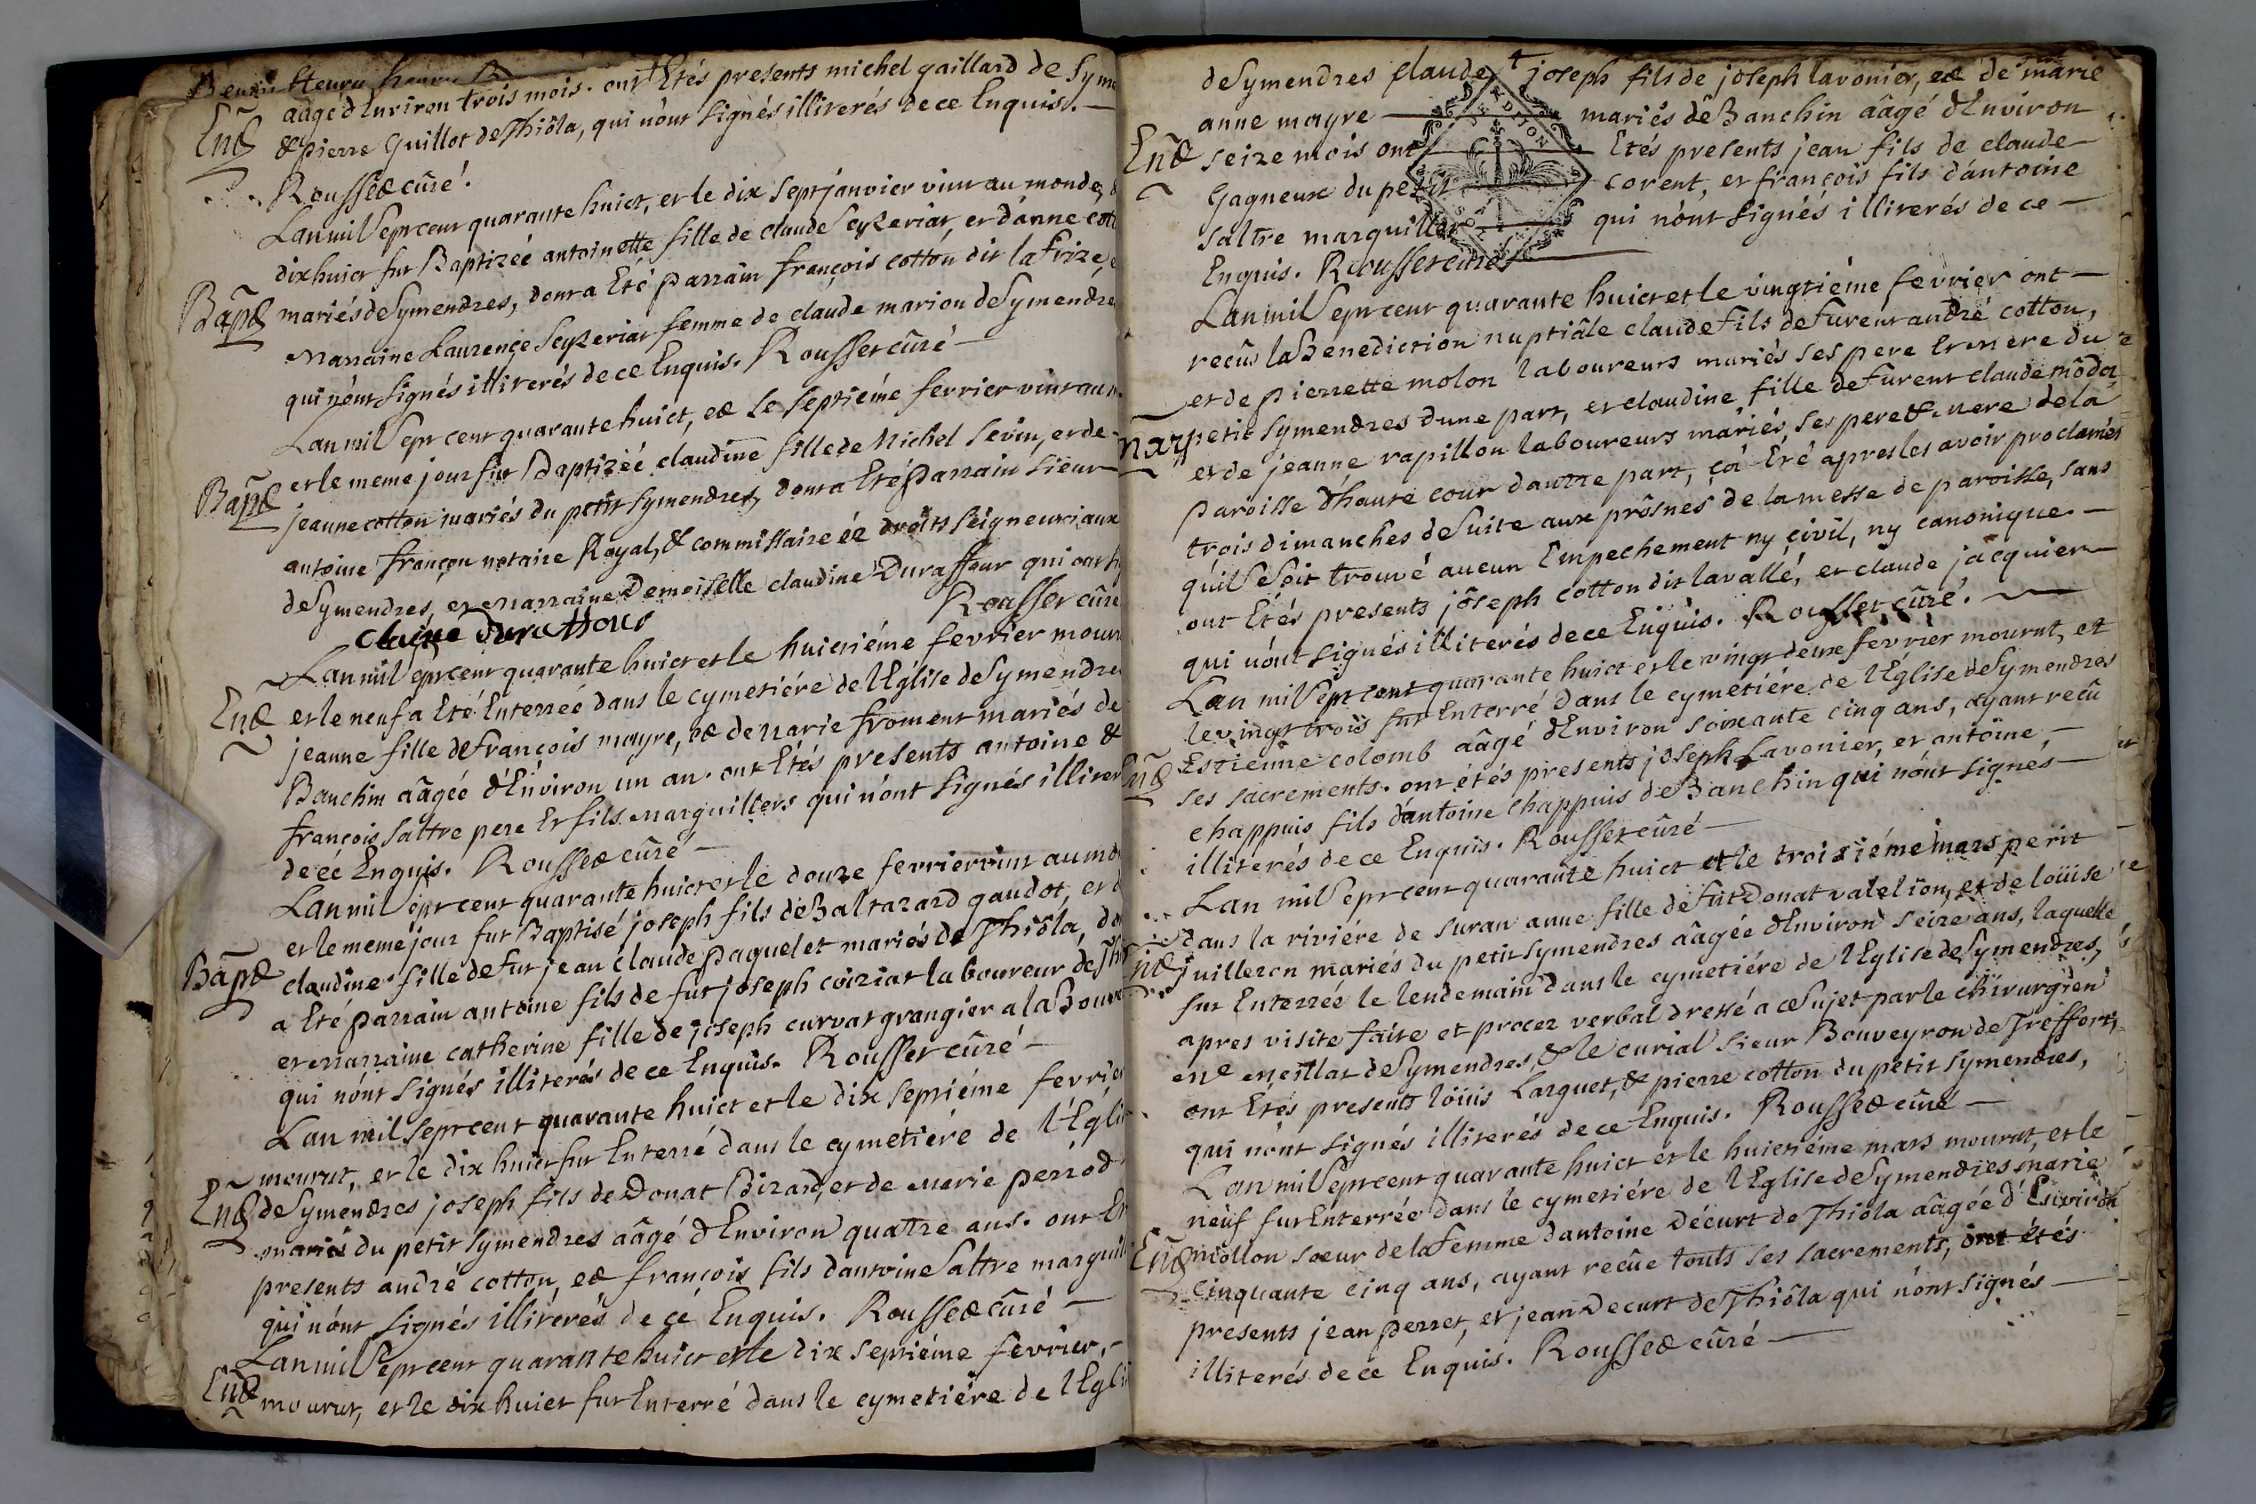 aâgé dEnviron trois mois. ont Etés presents michel gaillard de Syme
Ent
& pierre Guillot de Thiôla, qui nónt signés illiterés de ce Enquis. —
Rousset cûré.
Lan mil sept cent quarante huict, et le dix sept janvier vint au monde,
dixhuict fut Baptizéé antoinette fille de claude Seyzeriat, et dánne cott
Bapt
mariés de Symendres, dont a Eté parrain françois cotton dit la frize,
Marraine Laurençe Seyzeriat femme de claude marion de Symendre
qui nónt signés illiterés de ce Enquis. Rousset cûré —
Lan mil sept cent quarante huict, et le septiéme fevrier vint au m
et le méme jour fut Baptizéé claudine fille de Michel Sevin, et de -
Bapt
jeanne cotton mariés du petit Symendres, dont a Eté parrain sieur
antoine françon notaire Royal, & commissaire ée droits seigneuriaux
de Symendres, et Marraine Demoiselle claudine Duraffour qui ont
Rousset cûre
claine durattour
Lan mil sept cent quarante huict et le huictiéme fevrier mour
Ent
et le neuf a Eté Enterréé dans le cymetiére de lEglise de Symendre
jeanne fille de françois mayre, et de Marie froment mariés de
Banchin aâgéé dEnviron un an. ont Etés presents antoine &
françois Saltre pere Et fils Marguilliers qui nónt signés illiter
de cé Enquis. Rousset cûré —
Lan mil sept cent quarante huict et le douze fevrier vint au mon
et le meme jour fut Baptisé joseph fils de Baltazard gaudot, et d
Bapt
claudine fille de fut jean claude paquelet mariés de Thiôla, do
a Eté parrain antoine fils de fut joseph coiziat laboureur de Thi
et Marraine catherine fille de joseph curvat grangier a la Bouve
qui nónt signés illiterés de ce Enquis. Rousset cûré —
Lan mil sept cent quarante huict et le dix septiéme fevrie
mourut, et le dix huict fut Enterré dans le cymetiére de l'Egli
Ent
de Symendres joseph fils de Donat Bizard, et de Marie perrod
mariés du petit Symendres aâgé dEnviron quattre ans. ont Et
presents andré cotton, et françois fils dantoine Saltre marguil
qui nónt signés illiterés de cé Enquis. Rousset cûré —
Lan mil sept cent quarante huict et le dix septiéme fevrier, -
Ent
mourut, et le dix huict fut Enterré dans le cymetiére de lEgli
de Symendres claude joseph fils de joseph lavonier, et de marie
anne mayre — mariés de Banchin aâgé dEnviron
Ent
seize mois ont Etés presents jean fils de claude —
Gagneux du petit corent, et françois fils dántoine
Saltre marguiller qui nónt signés illiterés de ce —
Enquis. Rousset cûré
Lan mil sept cent quarante huict et le vingtiéme fevrier ont —
reçûs la Benediction nuptiâle claude fils de furent andré cotton,
et de pierrette molon laboureurs mariés ses pere Et Mere du
Mar
petit Symendres dune part, et claudine fille de furent claude môdet
et de jeanne rapillon laboureurs mariés ses pere & Mere de la
paroisse dhaute cour dautre part, ça Eté apres les avoir proclamés
trois dimanches de suite aux prôsnes de la messe de paroisse, sans
quil se soit trouvé aucun Empechement ny çivil, ny canonique. —
ont Etés presents jôseph cotton dit lavallé, et claude jacquier —
qui nónt signés illiterés de ce Enquis. Rousset cûré.
Lan mil sept cent quarante huict et le vingt deux fevrier mourut, et
le vingt trois fut Enterré dans le cymetiére de lEglise de Symendres
Ent
Estienne colomb aâgé dEnviron soixante cinq ans, ayant reçû
ses sacrements. ont étés presents joseph Lavonier, et antoine, —
chappuis fils dántoine chappuis de Banchin qui nónt signés —
illiterés de ce Enquis. Rousset cûré —
Lan mil sept cent quarante huict et le troisiéme mars perit
dans la riviére de suran anne fille de fut Donat valelion, et de loüise
Ent
juilleron mariés du petit Symendres aâgée dEnviron seize ans, laquelle
fut Enterréé le lendemain dans le cymetiére de lEglise de Symendres,
apres visite faite et procez verbal dressé a ce sujet par le chirurgien
en éillat de Symendres, & le curial sieur Bouveyron de Treffort,
ont Etes presents loüis Larguet, & pierre cotton du petit Symendres,
qui nónt signés illiterés de cé Enquis. Rousset cûré —
Lan mil sept cent quarante huict et le huictiéme mars mourut, et le
neuf fut Enterréé dans le cymetiére de lEglise de Symendres marie
Ent
mollon soeur de la femme dantoine Décurt de Thiôla aâgée d'Environ
cinquante cinq ans, ayant reçûe touts ses sacrements, ont étés
presents jean perret, et jean Decurt de Thiôla qui nónt signés —
illiterés de cé Enquis. Rousset cûré —